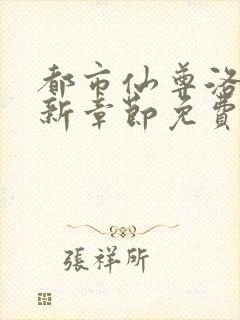 都市仙尊洛
新章節免費
張祥所